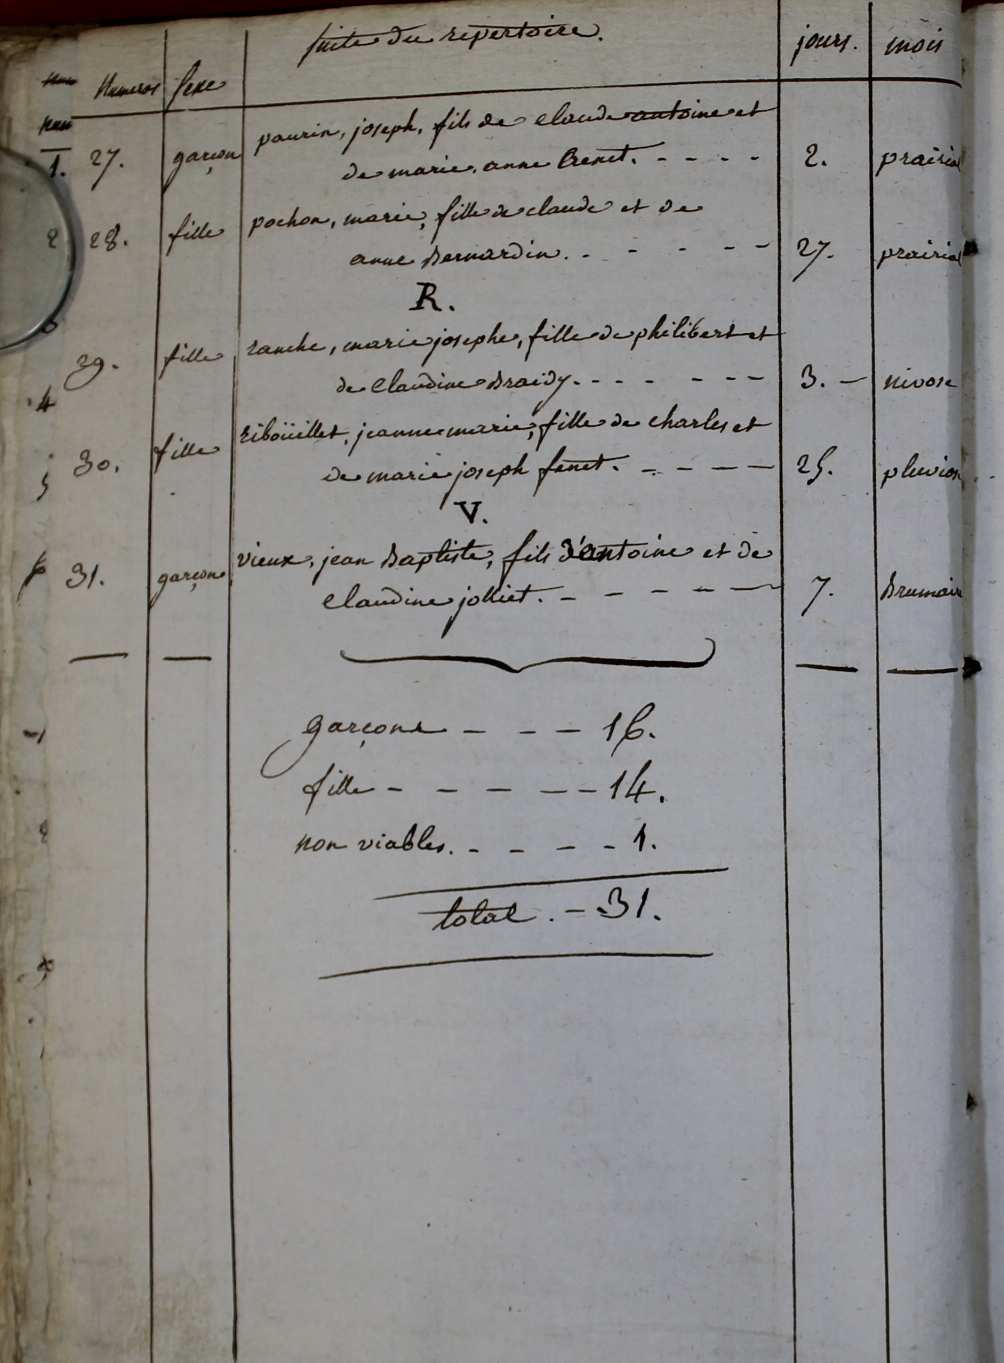 suite du repertoire.
Numeros Sexe jours. mois
27. garçon paurin, joseph, fils de claude antoine et
de marie anne Crenet. - - - - 2. prairial
28. fille pochon, marie, fille de claude et de
anne Bernardin. - - - - 27. prairial
R.
29. fille ranche, marie josephe, fille de philibert et
de Claudine Braidy. - - - - - - 3. - nivose
30. fille riboüillet, jeanne marie, fille de charles et
de marie joseph fenet. - - - - 25. pluviose
V.
31. garçon vieux, jean Baptiste, fils d'antoine et de
Claudine jolliet. - - - - - 7. Brumaire
garçons - - - 16.
fille - - - - - 14.
non viables. - - - - 1.
total. - 31.